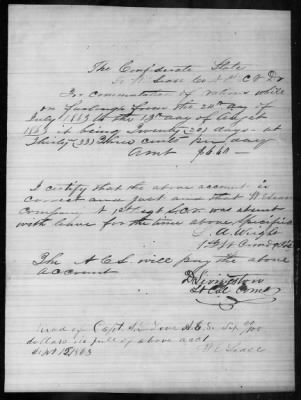 The Confederate States
To W. Lease Co A 1st C V Dr
For commutation of rations while
on furlough from the 24th day of
July 1863 to the 13th day of August
1863 it being Twenty (20) days at
Thirty (33) Three cents per day
Amt $6.60
I certify that the above account is
correct and just and that W. Lease
Company was absent
with leave for the time above specified
A. Wright
The A C S will pay the above
account
D Livingston
Lt Col Comd
dollars in full of above acct
Sept 12, 1863
W. Lease